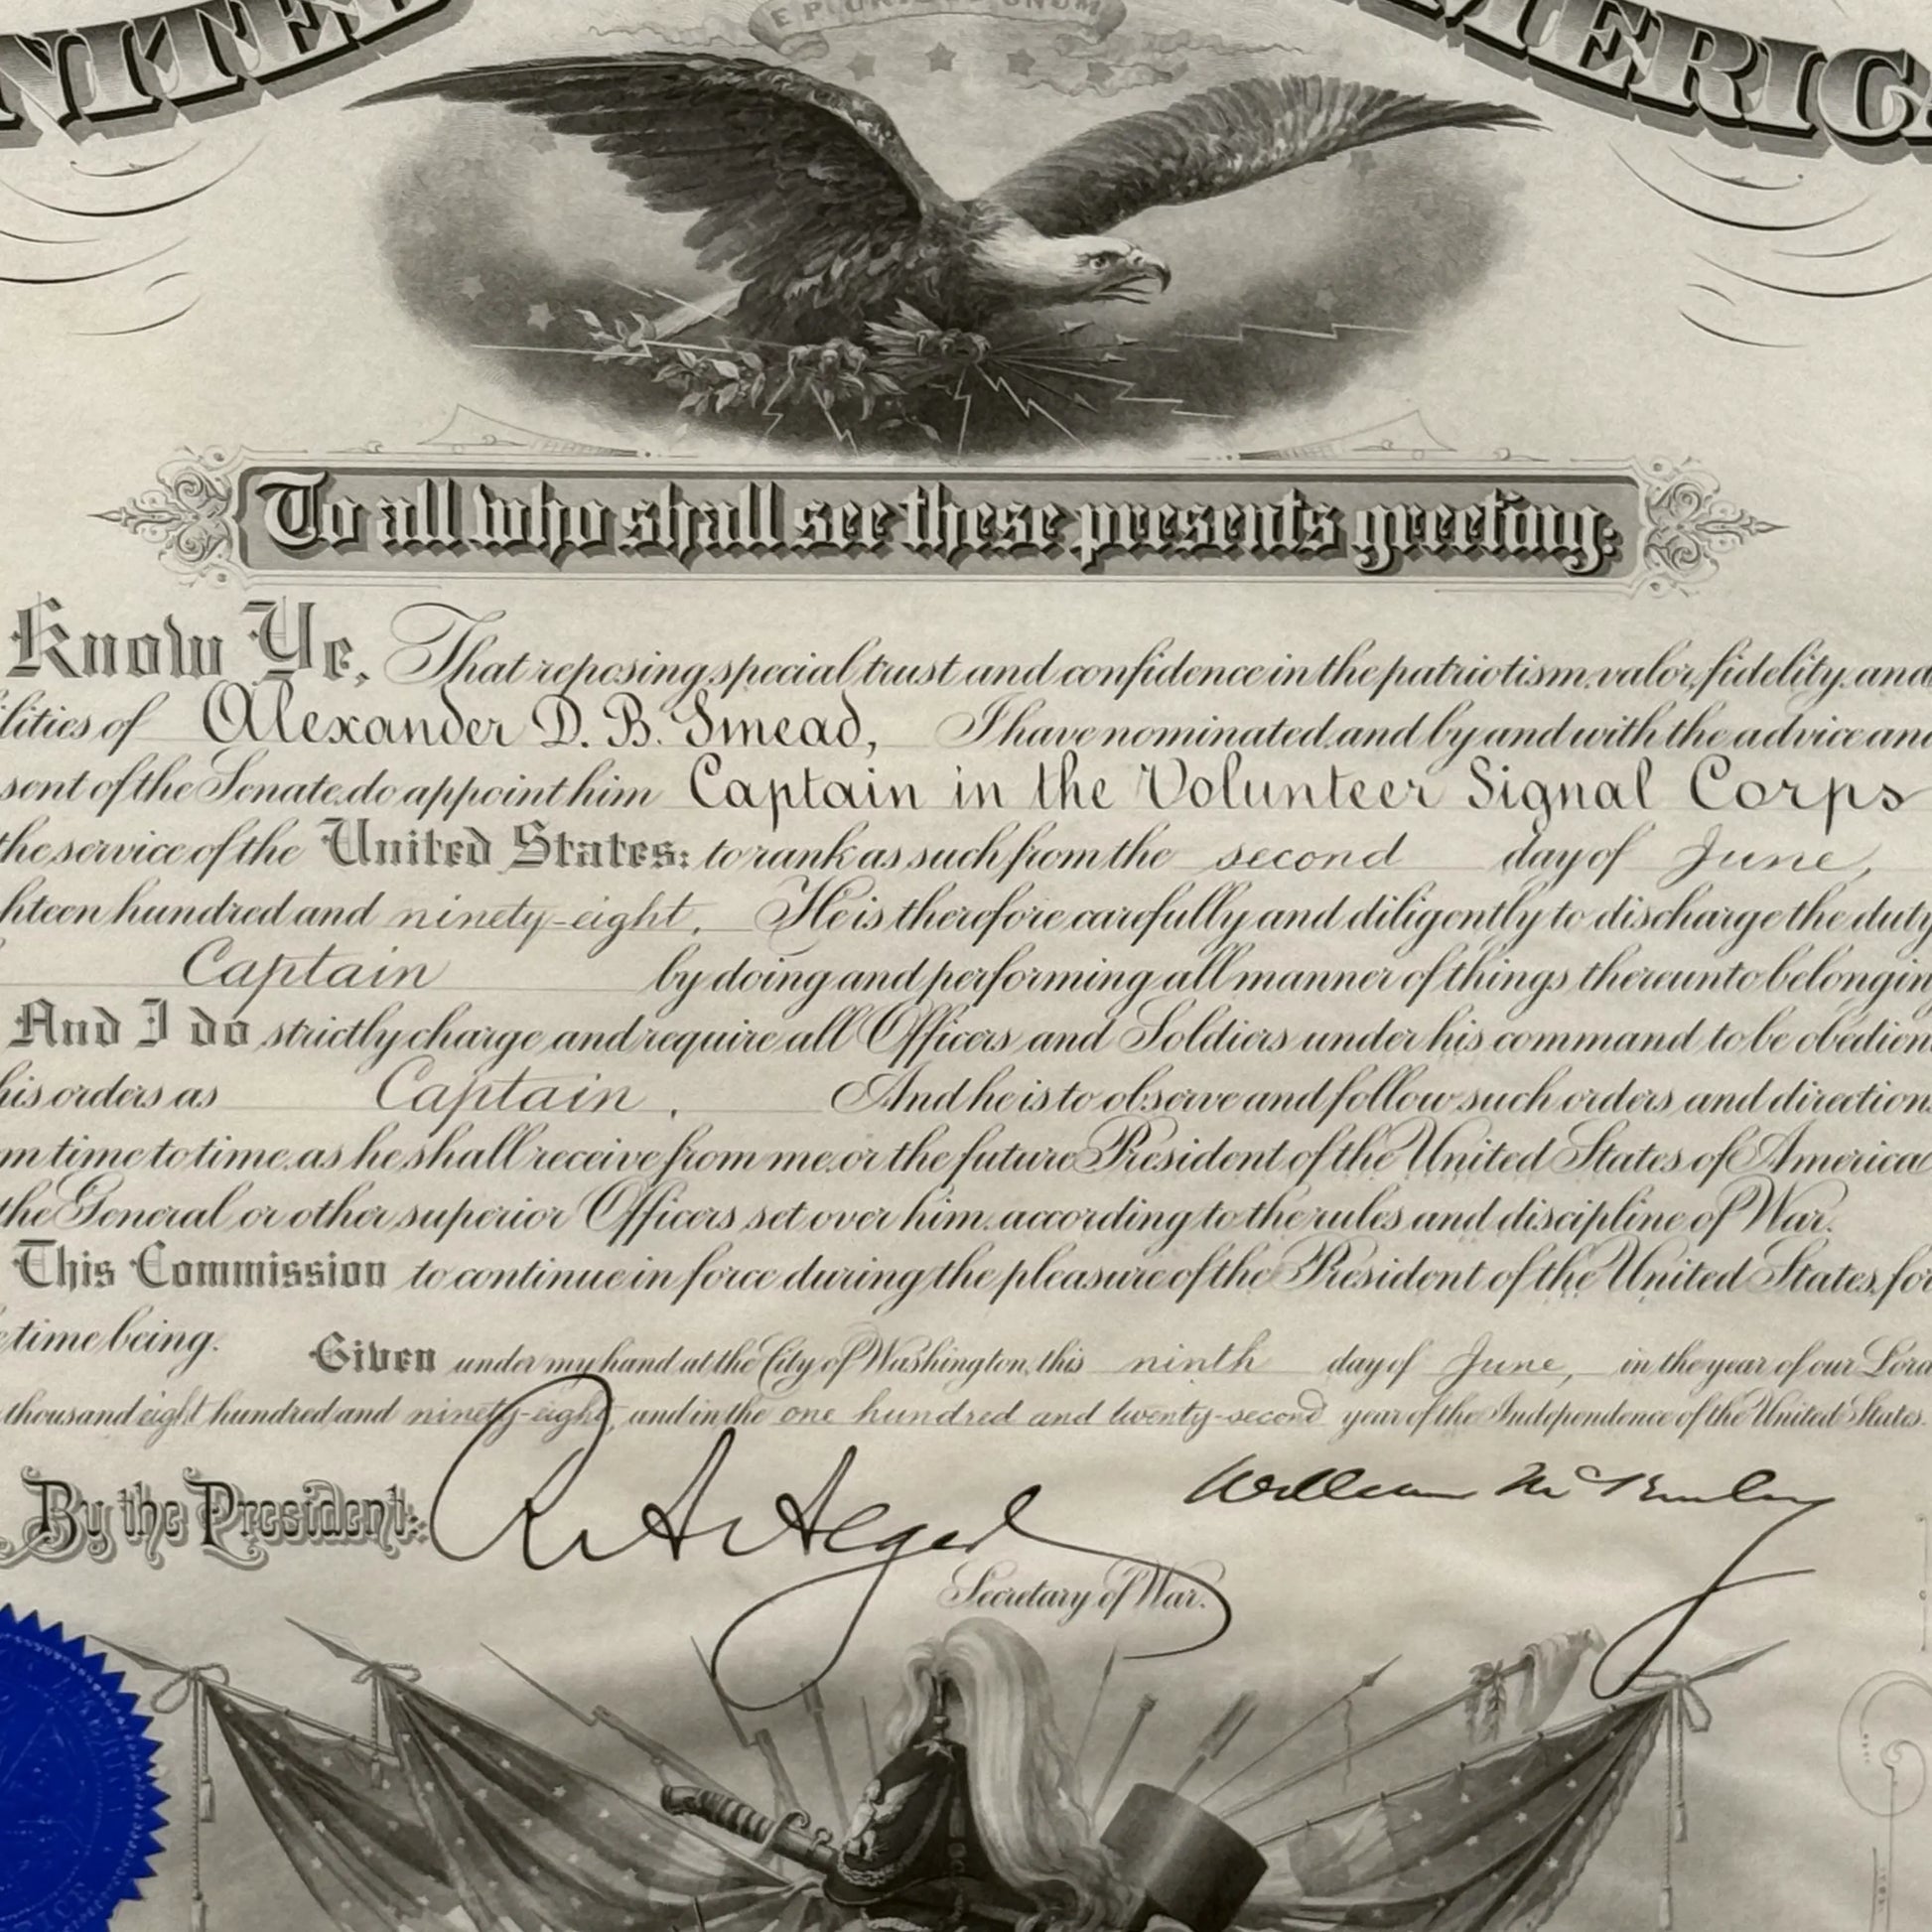 NITED
E PLURIBUS UNUM
AMERICA
To all who shall see these presents greeting:
Know Ye, That reposing special trust and confidence in the patriotism, valor, fidelity, and
lities of Alexander D. B. Smead, I have nominated, and by and with the advice and
sent of the Senate, do appoint him Captain in the Volunteer Signal Corps
the service of the United States: to rank as such from the second day of June,
hteen hundred and ninety-eight. He is therefore carefully and diligently to discharge the duty
Captain by doing and performing all manner of things thereunto belongin
And I do strictly charge and require all Officers and Soldiers under his command to be obedien
his orders as Captain. And he is to observe and follow such orders and directions
m time to time, as he shall receive from me, or the future President of the United States of America
the General or other superior Officers set over him, according to the rules and discipline of War.
This Commission to continue in force during the pleasure of the President of the United States, for
time being.
Given under my hand at the City of Washington, this ninth day of June, in the year of our Lord
thousand eight hundred and ninety-eight, and in the one hundred and twenty-second year of the Independence of the United States.
By the President: R A Alger William McKinley
Secretary of War.